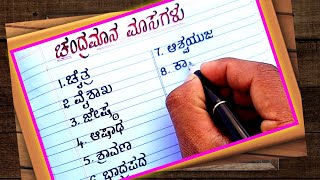 ಚಂದ್ರಮಾನ ಮಾಸಗಳು
1. ಚೈತ್ರ
2. ವೈಶಾಖ
3. ಜೇಷ್ಠ
4. ಆಷಾಢ
5. ಶ್ರಾವಣ
6. ಭಾದ್ರಪದ
7. ಆಶ್ವಯುಜ
8. ಕಾ